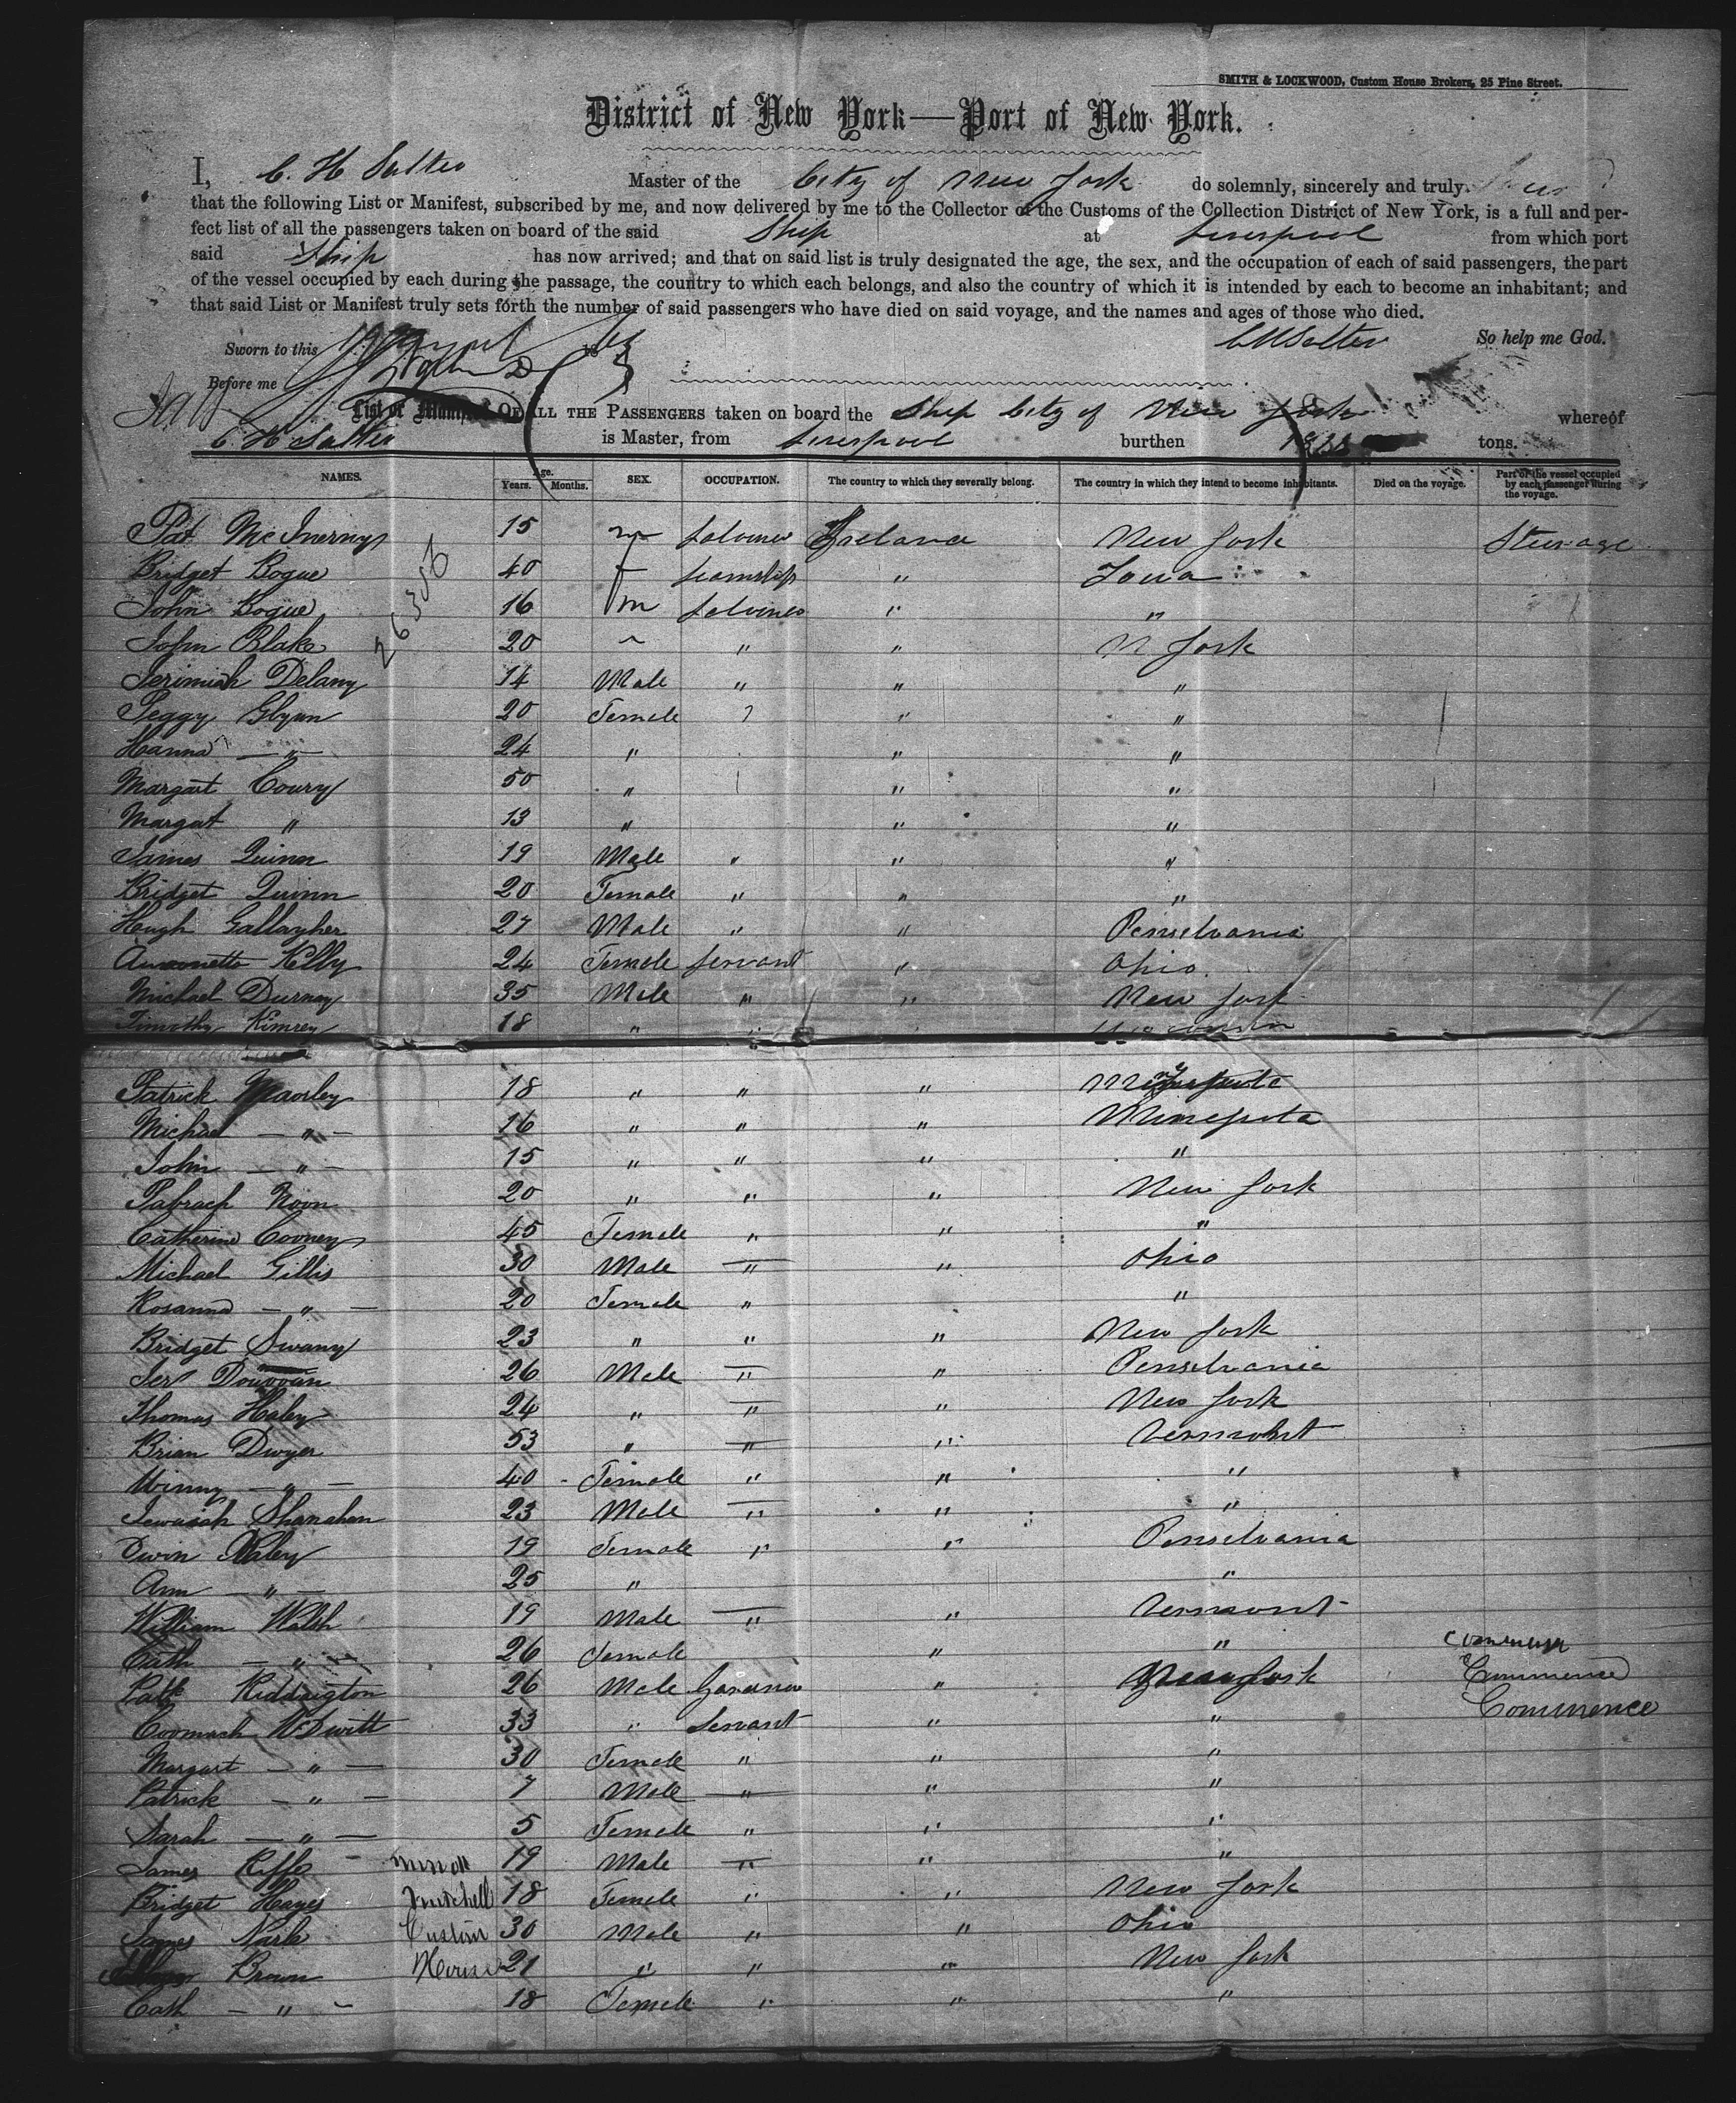 SMITH & LOCKWOOD, Custom House Brokers, 25 Pine Street.
District of New York—Port of New York.
I, C. H Salter Master of the City of New York do solemnly, sincerely and truly
that the following List or Manifest, subscribed by me, and now delivered by me to the Collector of the Customs of the Collection District of New York, is a full and per-
fect list of all the passengers taken on board of the said Ship at Liverpool from which port
said Ship has now arrived; and that on said list is truly designated the age, the sex, and the occupation of each of said passengers, the part
of the vessel occupied by each during the passage, the country to which each belongs, and also the country of which it is intended by each to become an inhabitant; and
that said List or Manifest truly sets forth the number of said passengers who have died on said voyage, and the names and ages of those who died.
Sworn to this C H Salter So help me God.
Before me
List or Manifest OF ALL THE PASSENGERS taken on board the Ship City of New York whereof
C. H Salter is Master, from Liverpool burthen tons.
NAMES. Age. Years. Months. SEX. OCCUPATION. The country to which they severally belong. The country in which they intend to become inhabitants. Died on the voyage. Part of the vessel occupied by each passenger during the voyage.
Pat McInerny 15 m Labourer Ireland New York Steerage
Bridget Bogue 40 f " Iowa
John Bogue 16 m Labourer " "
John Blake 20 " " N York
Jerimiah Delany 14 Male " " "
Peggy Glynn 20 Female " "
Hanna — " — 24 " " "
Margart Coury 50 " " "
Margat " 13 " " "
James Quinn 19 Male " " "
Bridget Quinn 20 Female " " "
Hugh Gallagher 27 Male " " Penselvania
Kelly 24 Female Servant " Ohio
Michael Durney 35 Male " " New York
Timothy Kimrey 18 " "
Patrick 18 " " "
Michael — " — 16 " " " Minesputa
John — " — 15 " " " "
Noon 20 " " " New York
Catherine Cooney 45 Female " " "
Michael Gillis 30 Male " " Ohio
Rosanna — " — 20 Female " "
Bridget Swany 23 " " " New York
Jer Donovan 26 Male " " Penselvania
Thomas Haley 24 " " " New York
Brian Dwyer 53 " " " Vermont
Winny — " — 40 Female " " "
Shanahan 23 Male " " "
19 Female " " Penselvania
Ann — " — 25 " "
William Walsh 19 Male " " Vermont
Cath — " — 26 Female " "
Patk Riddington 26 Male Gardener " New York Commence
Coomach McDwitt 33 " Servant " " Commence
Margart — " — 30 Female " " "
Patrick — " — 7 Male " " "
Sarah — " — 5 Female " " "
James 19 Male " " "
Bridget Hayes Mitchell 18 Female " " New York
James Custom 30 Male " " Ohio
Brown House 21 " " " New York
Cath — " — 18 Female " " "